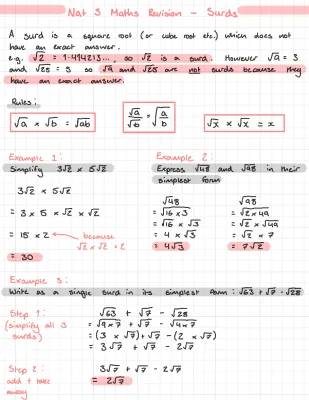 Nat 5 Maths Revision - Surds
A surd is a square root (or cube root etc.) which does not
have an exact answer.
e.g. √2 = 1.414213..., so √2 is a surd. However √9 = 3
and √25 = 5 so √9 and √25 are not surds because they
have an exact answer.
Rules:
√a × √b = √ab
√a/√b = √(a/b)
√x × √x = x
Example 1:
Simplify 3√2 × 5√2
3√2 × 5√2
= 3 × 5 × √2 × √2
= 15 × 2
because
√2 × √2 = 2
= 30
Example 2:
Express √48 and √98 in their
simplest form
√48
= √16 × 3
= √16 × √3
= 4 × √3
= 4√3
√98
= √2 × 49
= √2 × √49
= √2 × 7
= 7√2
Example 3:
Write as a single surd in its simplest form: √63 + √7 - √28
Step 1:
(simplify all 3
surds)
√63 + √7 - √28
= √9×7 + √7 - √4×7
= (3 × √7) + √7 - (2 × √7)
= 3√7 + √7 - 2√7
Step 2:
add + take
away
3√7 + √7 - 2√7
= 2√7